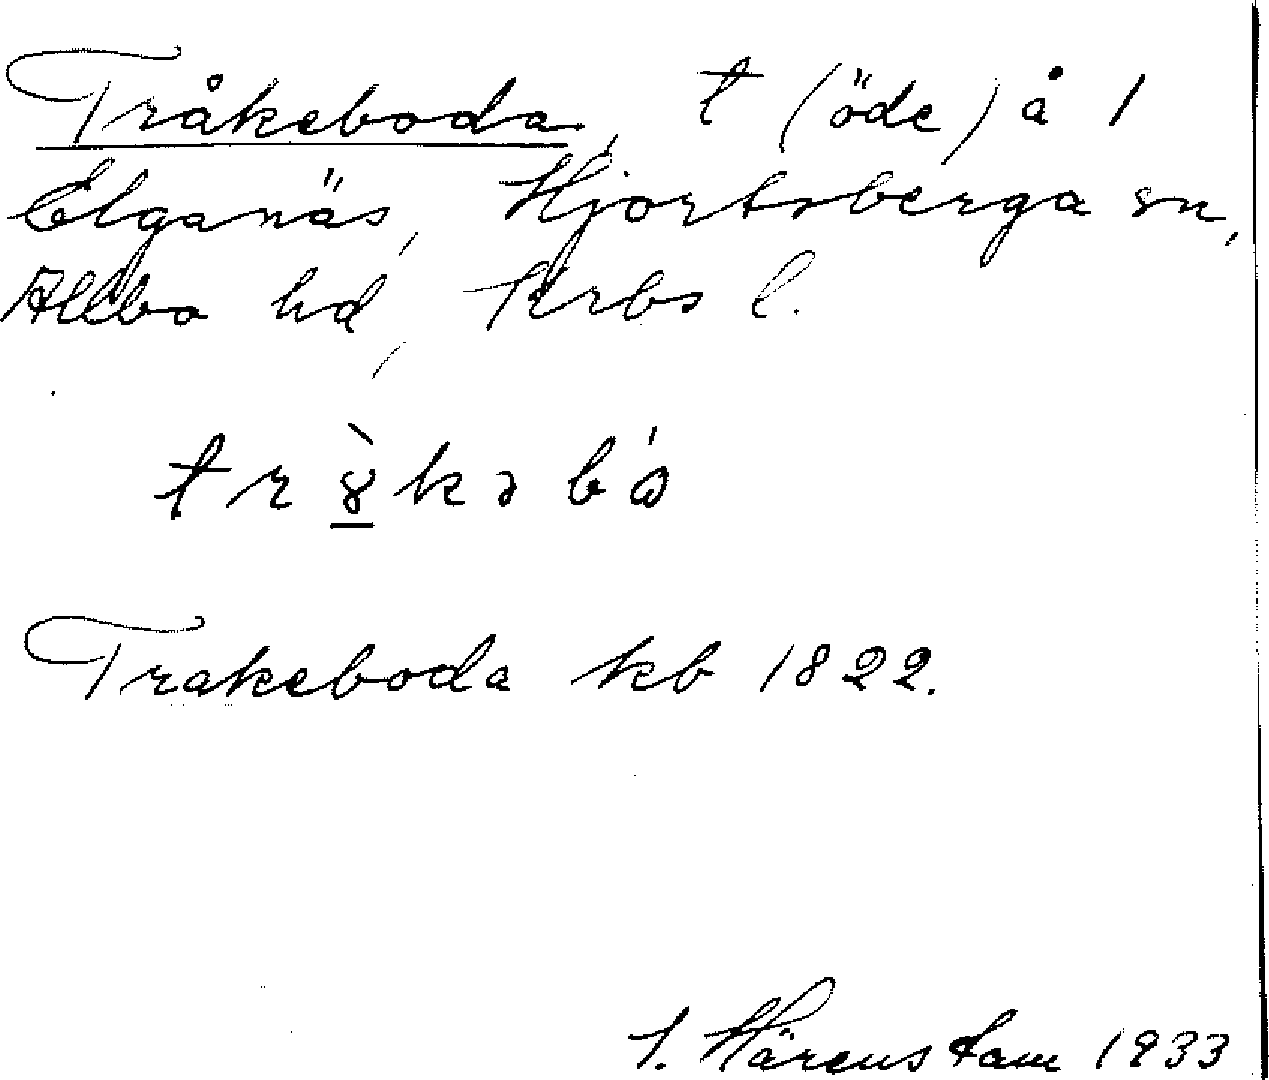 Tråkeboda, t (öde) å 1
Elganäs, Hjortsberga sn,
Allbo hd, Krbs l.
tr8̲̀kəbó
Trakeboda kb 1822.
Härenstam 1933